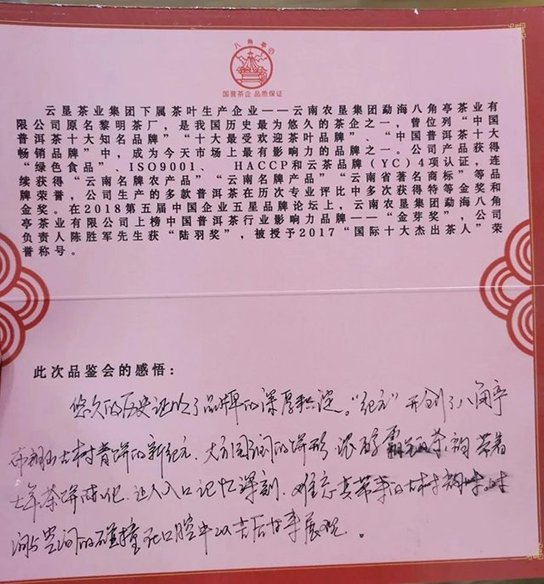 八角亭
国营茶企 品质保证
云垦茶业集团下属茶叶生产企业——云南农垦集团勐海八角亭茶业有
限公司原名黎明茶厂，是我国历史最为悠久的茶企之一，曾位列“中国
普洱茶十大知名品牌”“十大最受欢迎茶叶品牌”、“中国普洱茶十大
畅销品牌”中，成为今天市场上最有影响力的品牌之一。公司产品获得
“绿色食品”、ISO9001、HACCP和云茶品牌(YC)4项认证，连
续获得“云南名牌农产品”“云南名牌产品”“云南省著名商标”等品
牌荣誉，公司生产的多款普洱茶在历次专业评比中多次获得特等金奖和
金奖。在2018第五届中国企业五星品牌论坛上，云南农垦集团勐海八角
亭茶业有限公司上榜中国普洱茶行业影响力品牌——“金芽奖”，公司
负责人陈胜军先生获“陆羽奖”，被授予2017“国际十大杰出茶人”荣
誉称号。
此次品鉴会的感悟：
悠久的历史证明了品牌的深厚积淀。“纪元”开创了八角亭
布朗山古树青饼的新纪元，大方圆润的饼形，浓醇霸气的茶韵带着
七年茶饼陈化，让人入口记忆深刻，难忘其带来的古树韵味，时
间与空间的碰撞在口腔中以吉后甘来展现。